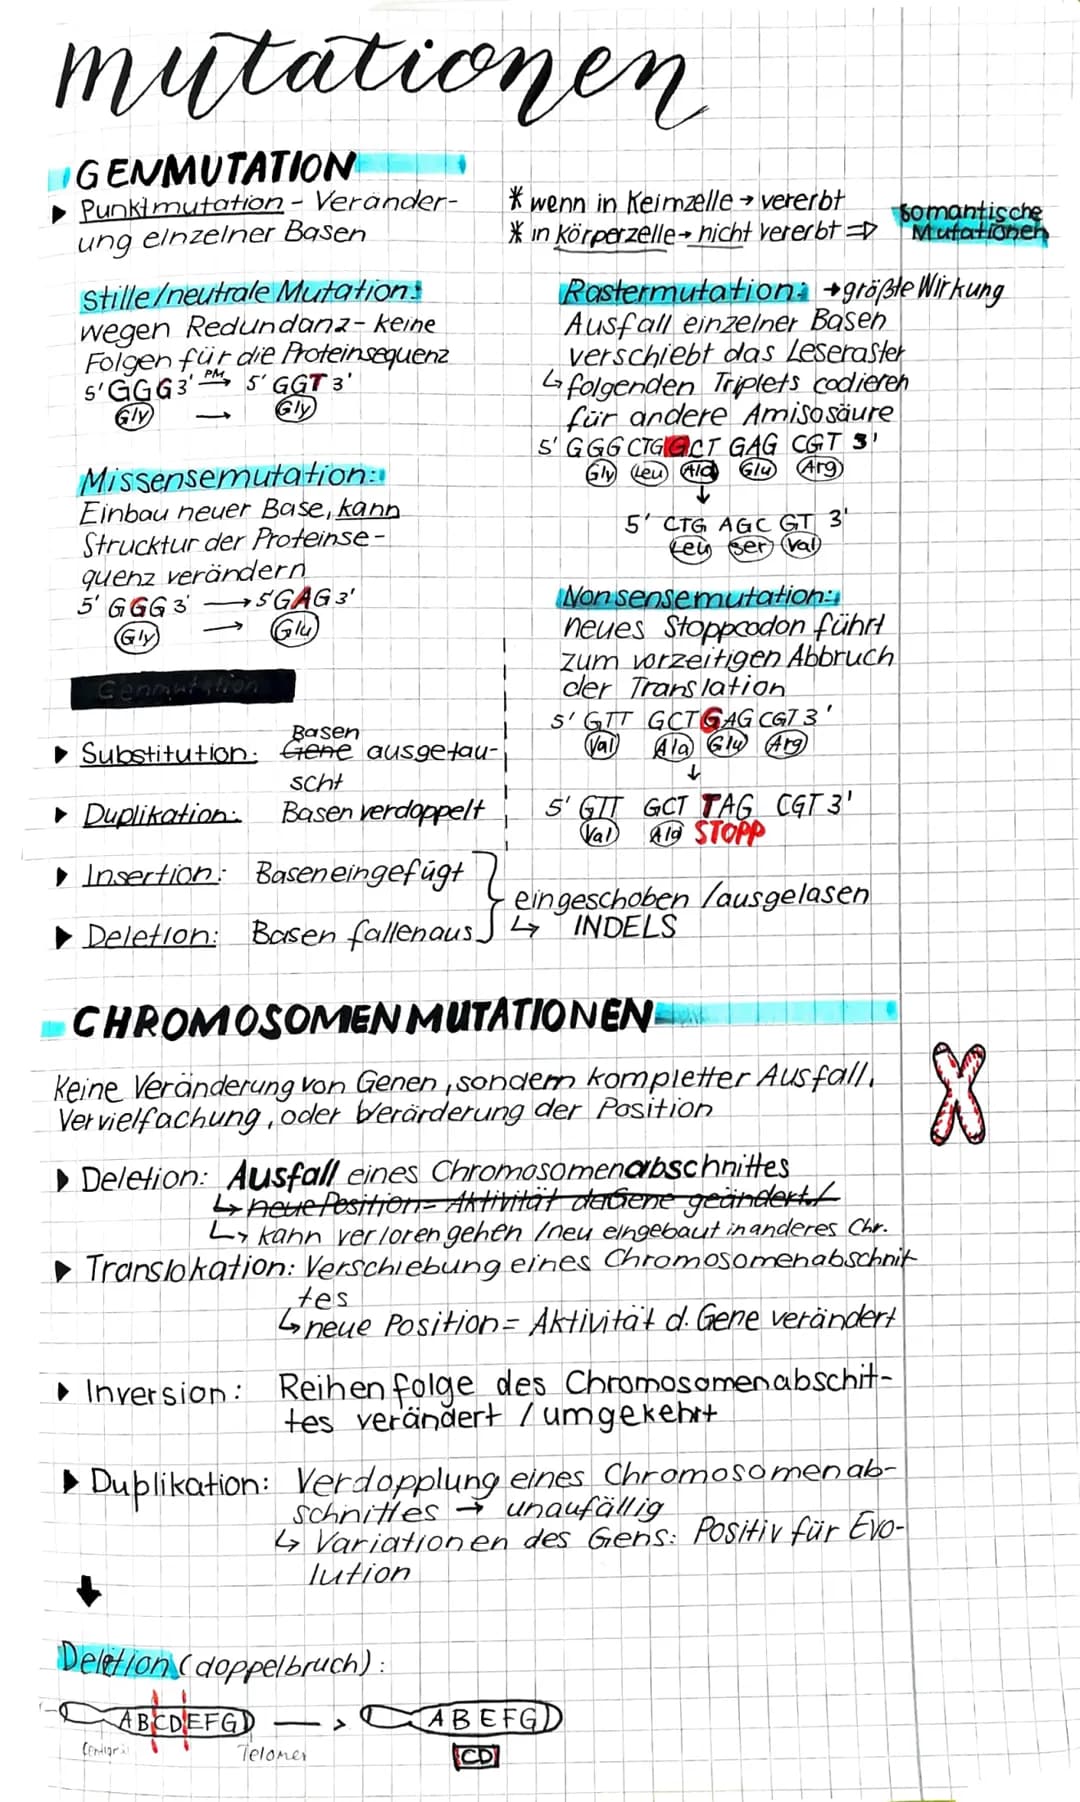 mutationen
GENMUTATION
▶ Punktmutation - Veränder-
ung einzelner Basen
* wenn in Keimzelle → vererbt
* in körperzelle → nicht vererbt ⇒
somantische
Mutationen
Stille/neutrale Mutation:
wegen Redundanz - keine
Folgen für die Proteinsequenz
5' GGG 3' PM→ 5' GGT 3'
Gly → Gly
Missensemutation:
Einbau neuer Base, kann
Strucktur der Proteinse-
quenz verändern
5' GGG 3' → 5' GAG 3'
Gly → Glu
Rastermutation: → größte Wirkung
Ausfall einzelner Basen
verschiebt das Leseraster
↳ folgenden Triplets codieren
für andere Amisosäure
5' GGG CTG GCT GAG CGT 3'
Gly Leu Ala Glu Arg
↓
5' CTG AGC GT 3'
Leu Ser Val
Nonsensemutation:
neues Stoppcodon führt
zum vorzeitigen Abbruch
der Translation
5' GTT GCT GAG CGT 3'
Val Ala Glu Arg
↓
5' GTT GCT TAG CGT 3'
Val Ala STOPP
Genmutation
Basen
▶ Substitution: Gene ausgetau-
scht
▶ Duplikation: Basen verdoppelt
▶ Insertion: Basen eingefügt
▶ Deletion: Basen fallen aus
eingeschoben / ausgelasen
↳ INDELS
CHROMOSOMENMUTATIONEN
Keine Veränderung von Genen, sondern kompletter Ausfall,
Vervielfachung, oder Verärderung der Position
▶ Deletion: Ausfall eines Chromosomenabschnittes
↳ neue Position = Aktivität da Gene geändert
↳ kann verloren gehen / neu eingebaut in anderes Chr.
▶ Translokation: Verschiebung eines Chromosomenabschnit-
tes
↳ neue Position = Aktivität d. Gene verändert
▶ Inversion: Reihenfolge des Chromosomenabschit-
tes verändert / umgekehrt
▶ Duplikation: Verdopplung eines Chromosomenab-
schnittes → unaufällig
↳ Variationen des Gens: Positiv für Evo-
lution
Deletion (doppelbruch):
ABCDEFG → ABEFG
Telomer
CD